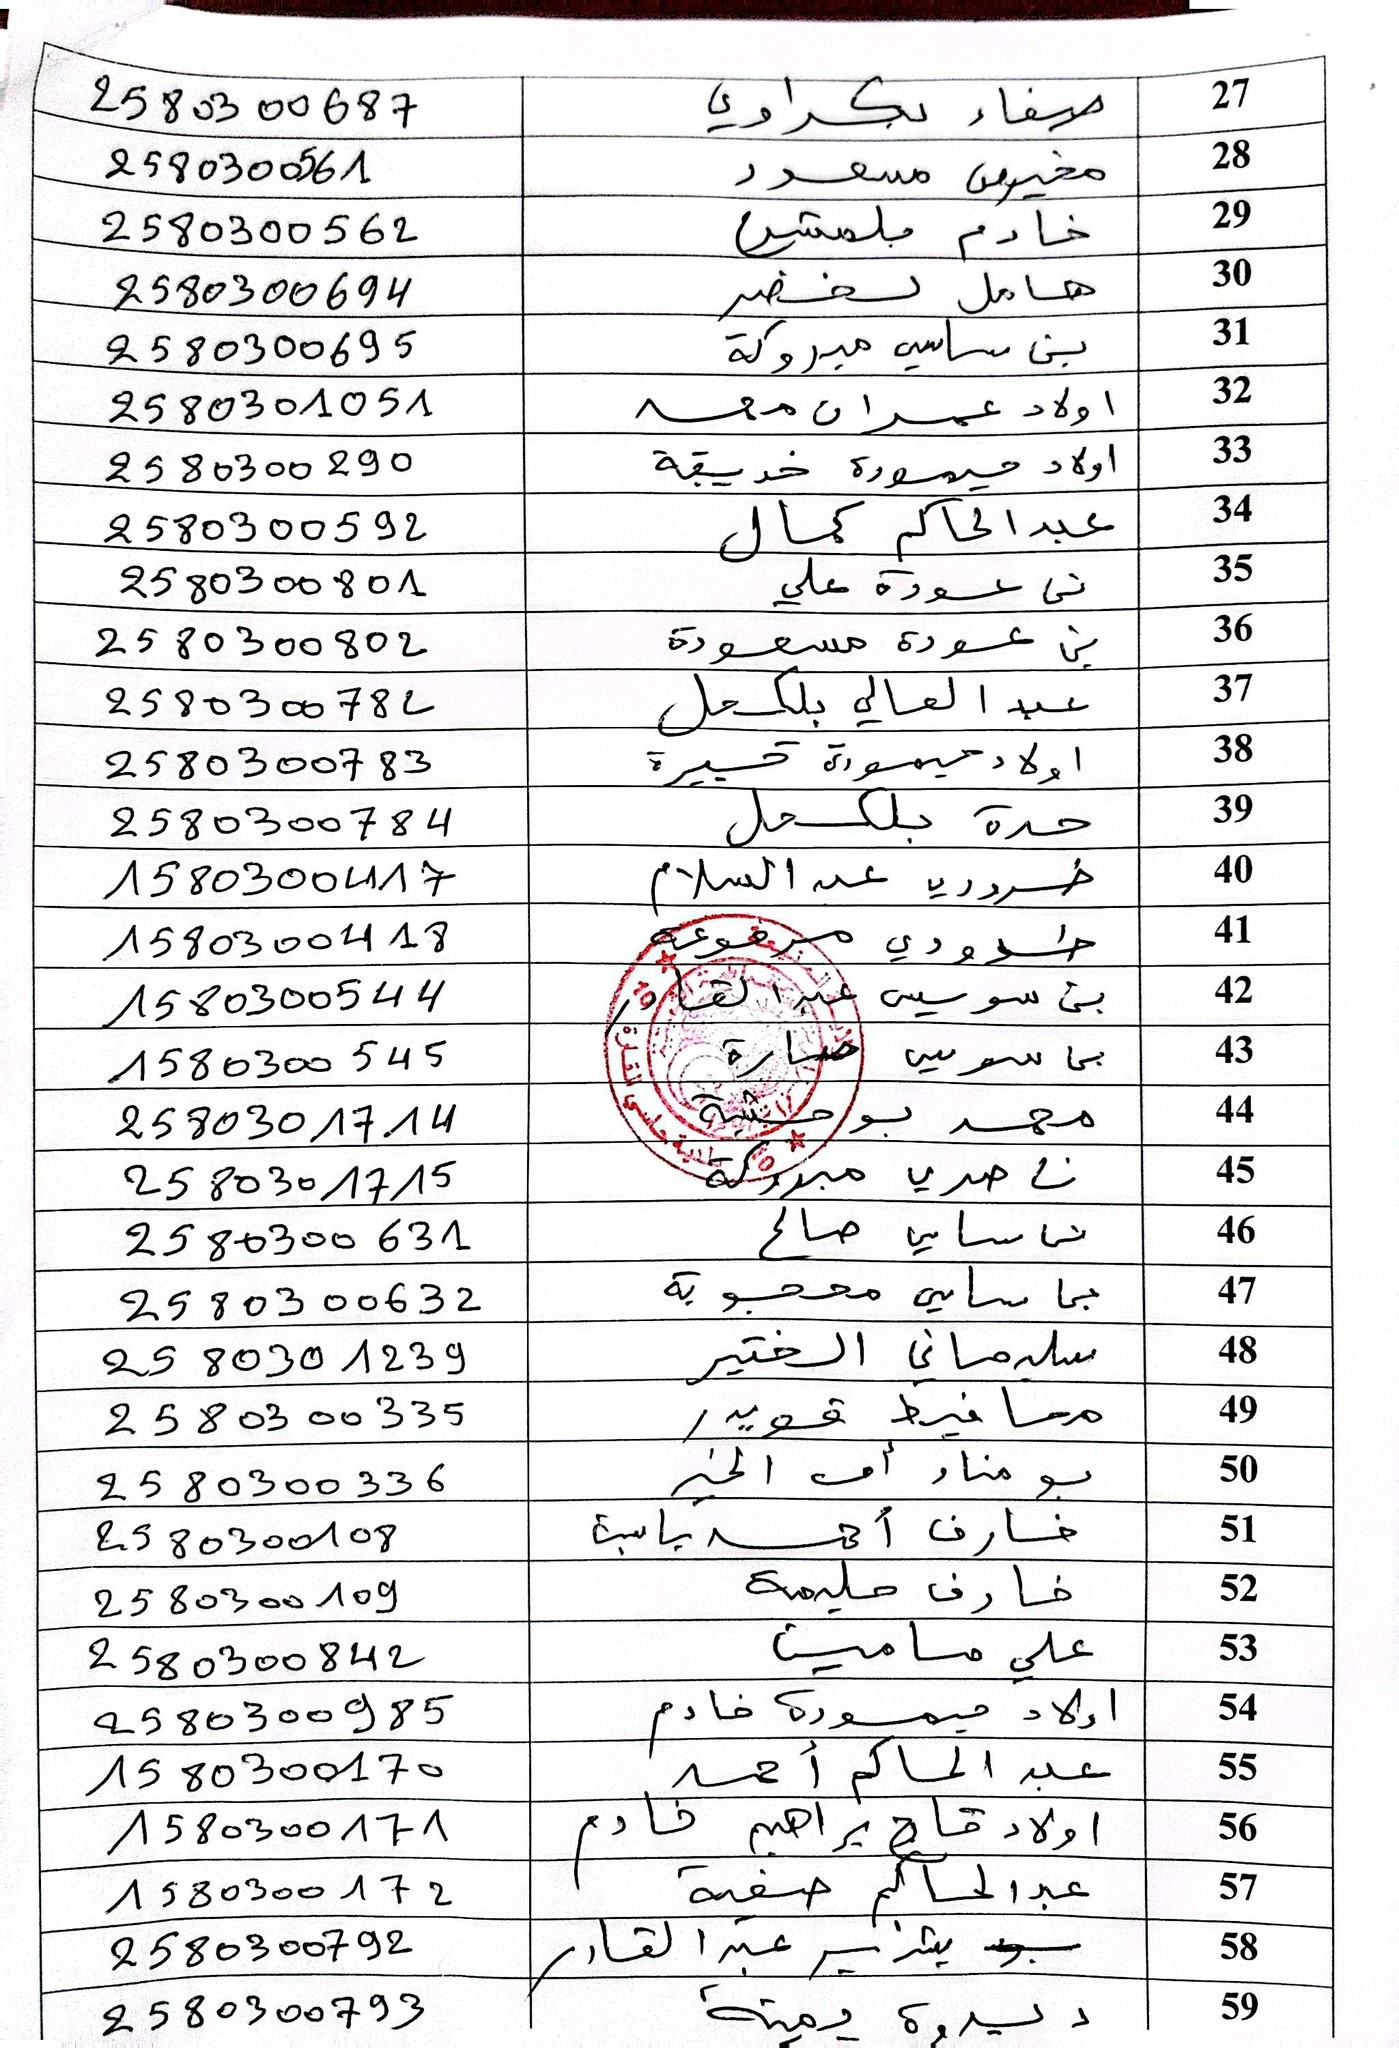 27 صفاء بكراوي 2580300687
28 مخيرمن مسعود 2580300561
29 خادم بلمشرح 2580300562
30 هامل لخضر 2580300694
31 بن ساسي مبروكة 2580300695
32 اولاد عمران محمد 2580301051
33 اولاد ميمودة خديقة 2580300290
34 عبد الحاكم كمال 2580300592
35 بن عودة علي 2580300801
36 بن عودة مسعودة 2580300802
37 عبد العالي بلكحل 2580300782
38 اولاد حيمودة 2580300783
39 حدة بلكحل 2580300784
40 ضروري عبد السلام 1580300417
41 مرفوعة 1580300418
42 بن سويسي عبد القادر 1580300544
43 سارة 1580300545
44 محمد بوحشية 2580301714
45 ناصري مبروكة 2580301715
46 بن ساسي صالح 2580300631
47 بن ساسي محجوبة 2580300632
48 سليماني 2580301239
49 قويدر 2580300335
50 بومناد أم الخير 2580300336
51 خارف أحمد ياسين 2580300108
52 خارف حليمة 2580300109
53 علي 2580300842
54 اولاد حيمودة خادم 2580300985
55 عبد الحاكم أحمد 1580300170
56 اولاد قاج براهيم خادم 1580300171
57 عبد الحاكم صفية 1580300172
58 عبد القادر 2580300792
59 يمينة 2580300793